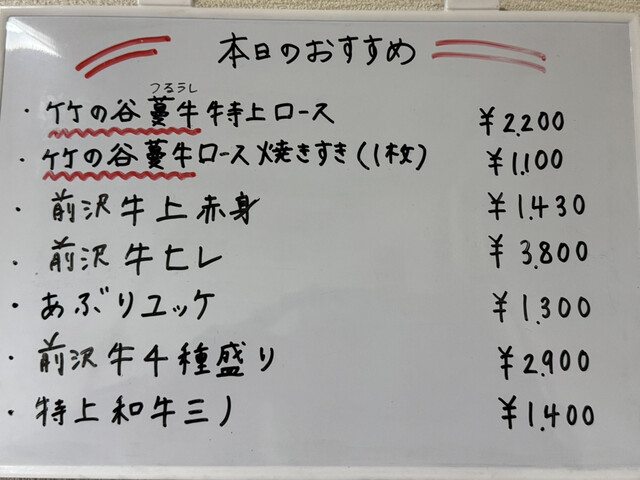 本日のおすすめ
つるうし
・竹の谷蔓牛特上ロース ¥2.200
・竹の谷蔓牛ロース焼きすき(1枚) ¥1.100
・前沢牛上赤身 ¥1.430
・前沢牛ヒレ ¥3.800
・あぶりユッケ ¥1.300
・前沢牛4種盛り ¥2.900
・特上和牛ミノ ¥1.400